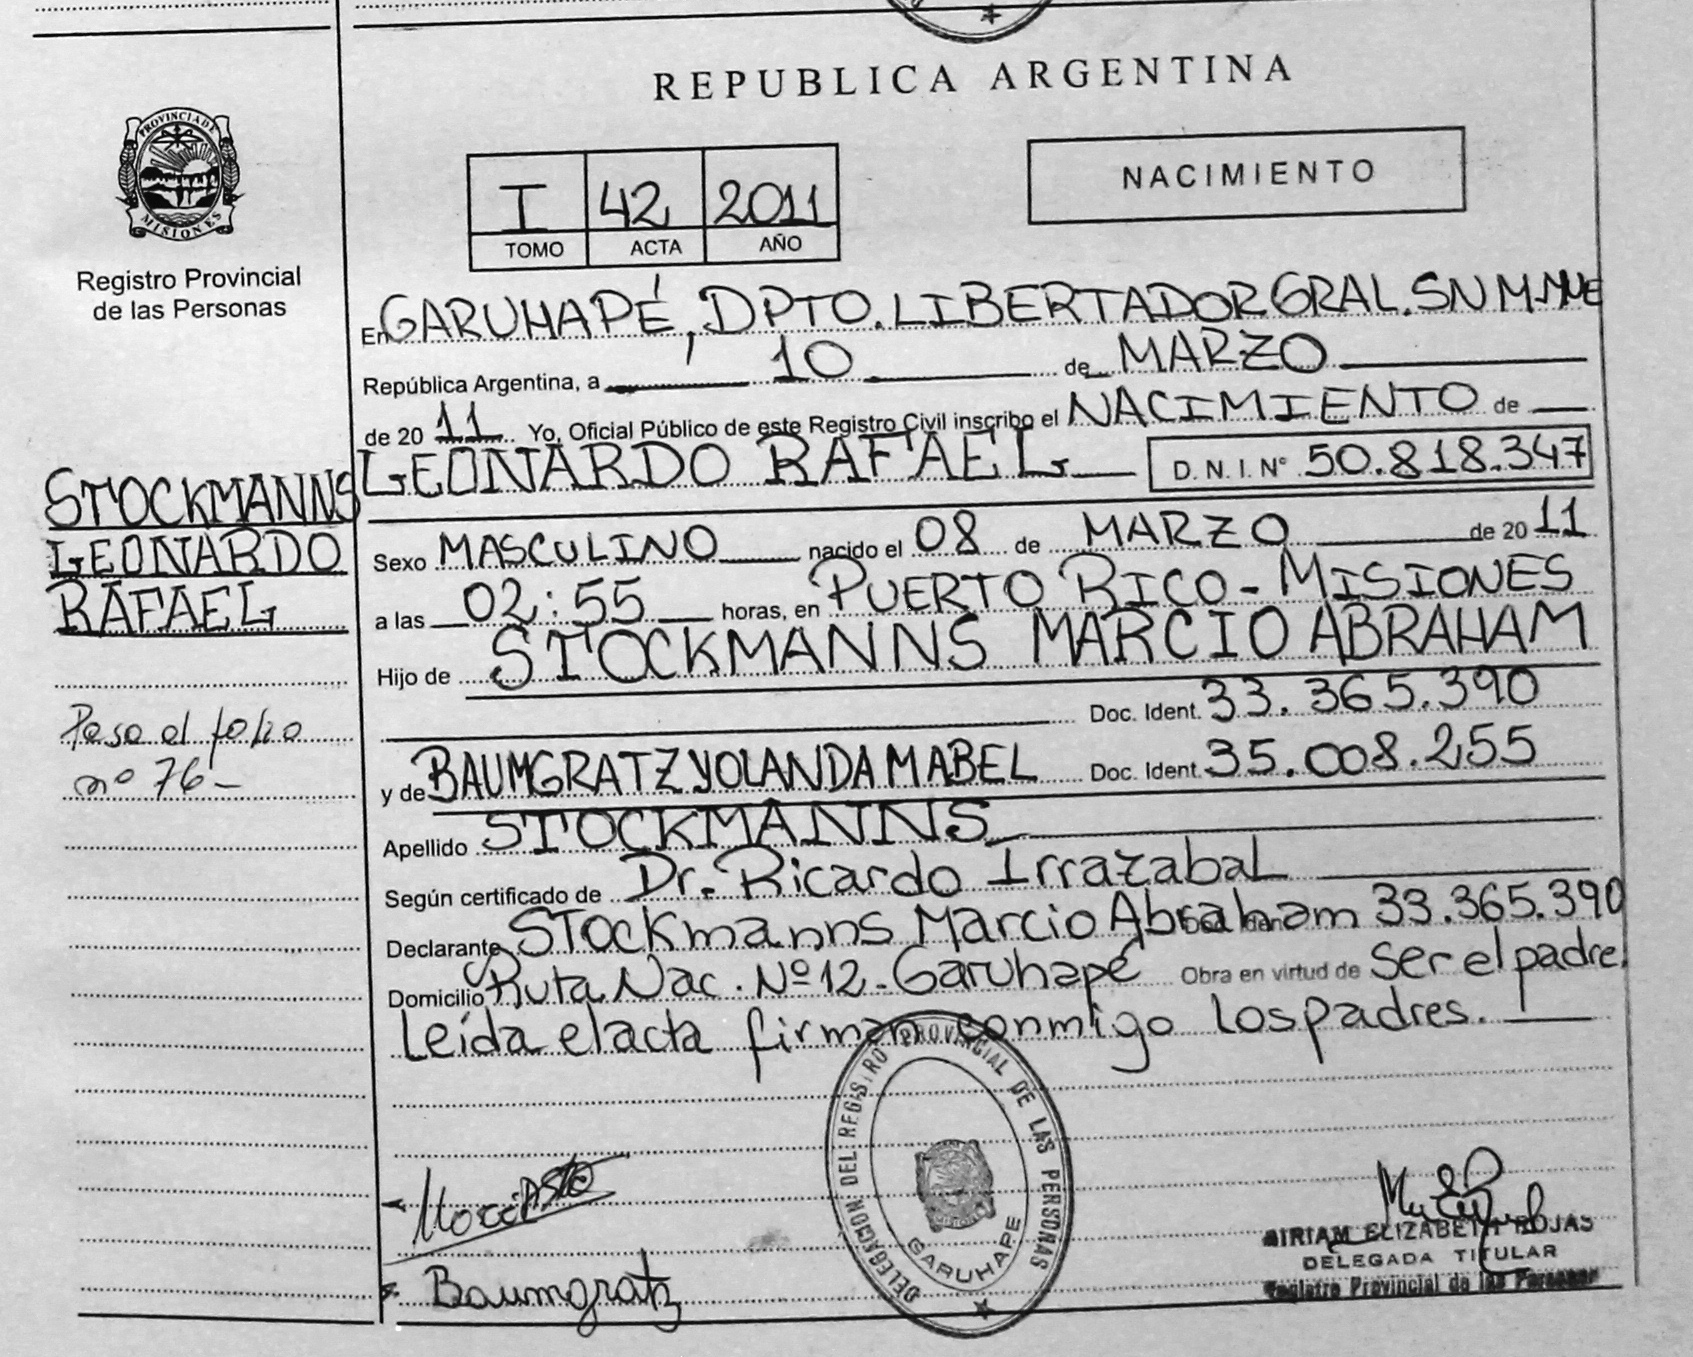 REPUBLICA ARGENTINA
PROVINCIA DE
MISIONES
Registro Provincial
de las Personas
I 42 2011
TOMO ACTA AÑO
NACIMIENTO
En GARUHAPÉ, DPTO. LIBERTADOR GRAL. SN M.
República Argentina, a 10 de MARZO
de 20 11 Yo, Oficial Público de este Registro Civil inscribo el NACIMIENTO de
LEONARDO RAFAEL D.N.I. Nº 50.818.347
STOCKMANNS
LEONARDO
RAFAEL
Sexo MASCULINO nacido el 08 de MARZO de 20 11
a las 02:55 horas, en PUERTO RICO - MISIONES
Hijo de STOCKMANNS MARCIO ABRAHAM
Doc. Ident. 33.365.390
Pasa al folio
nº 76-
y de BAUMGRATZ YOLANDA MABEL Doc. Ident. 35.008.255
Apellido STOCKMANNS
Según certificado de Dr. Ricardo Irrazabal
Declarante Stockmanns Marcio Abraham 33.365.390
Domicilio Ruta Nac. Nº 12 - Garuhapé Obra en virtud de ser el padre.
Leída el acta firman conmigo los padres.
DELEGACION DEL REGISTRO PROVINCIAL DE LAS PERSONAS
GARUHAPE
Baumgratz
MIRIAM ELIZABETH ROJAS
DELEGADA TITULAR
Registro Provincial de las Personas